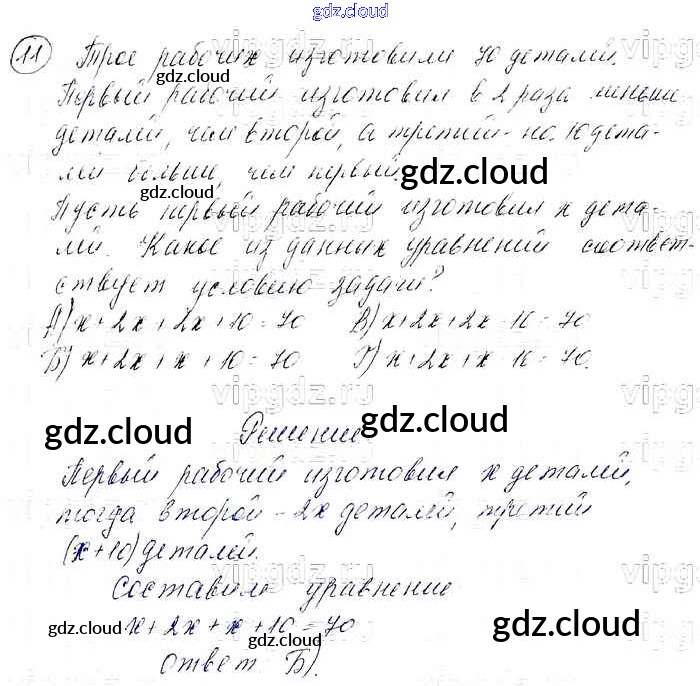 gdz.cloud
11 Трое рабочих изготовили 70 деталей.
gdz.cloud
Первый рабочий изготовил в 2 раза меньше
деталей, чем второй, а третий - на 10 дета-
лей больше, чем первый.
gdz.cloud
gdz.cloud
Пусть первый рабочий изготовил x дета-
лей. Какое из данных уравнений соответ-
ствует условию задачи?
А) x + 2x + 2x + 10 = 70 В) x + 2x + 2x - 10 = 70
Б) x + 2x + x + 10 = 70 Г) x + 2x + x - 10 = 70.
vipgdz.ru
vipgdz.ru
gdz.cloud
gdz.cloud
Решение
Первый рабочий изготовил x деталей,
тогда второй - 2x деталей, третий
(x+10) деталей.
Составим уравнение
gdz.cloud
x + 2x + x + 10 = 70
gdz.cloud
gdz.cloud
Ответ: Б).